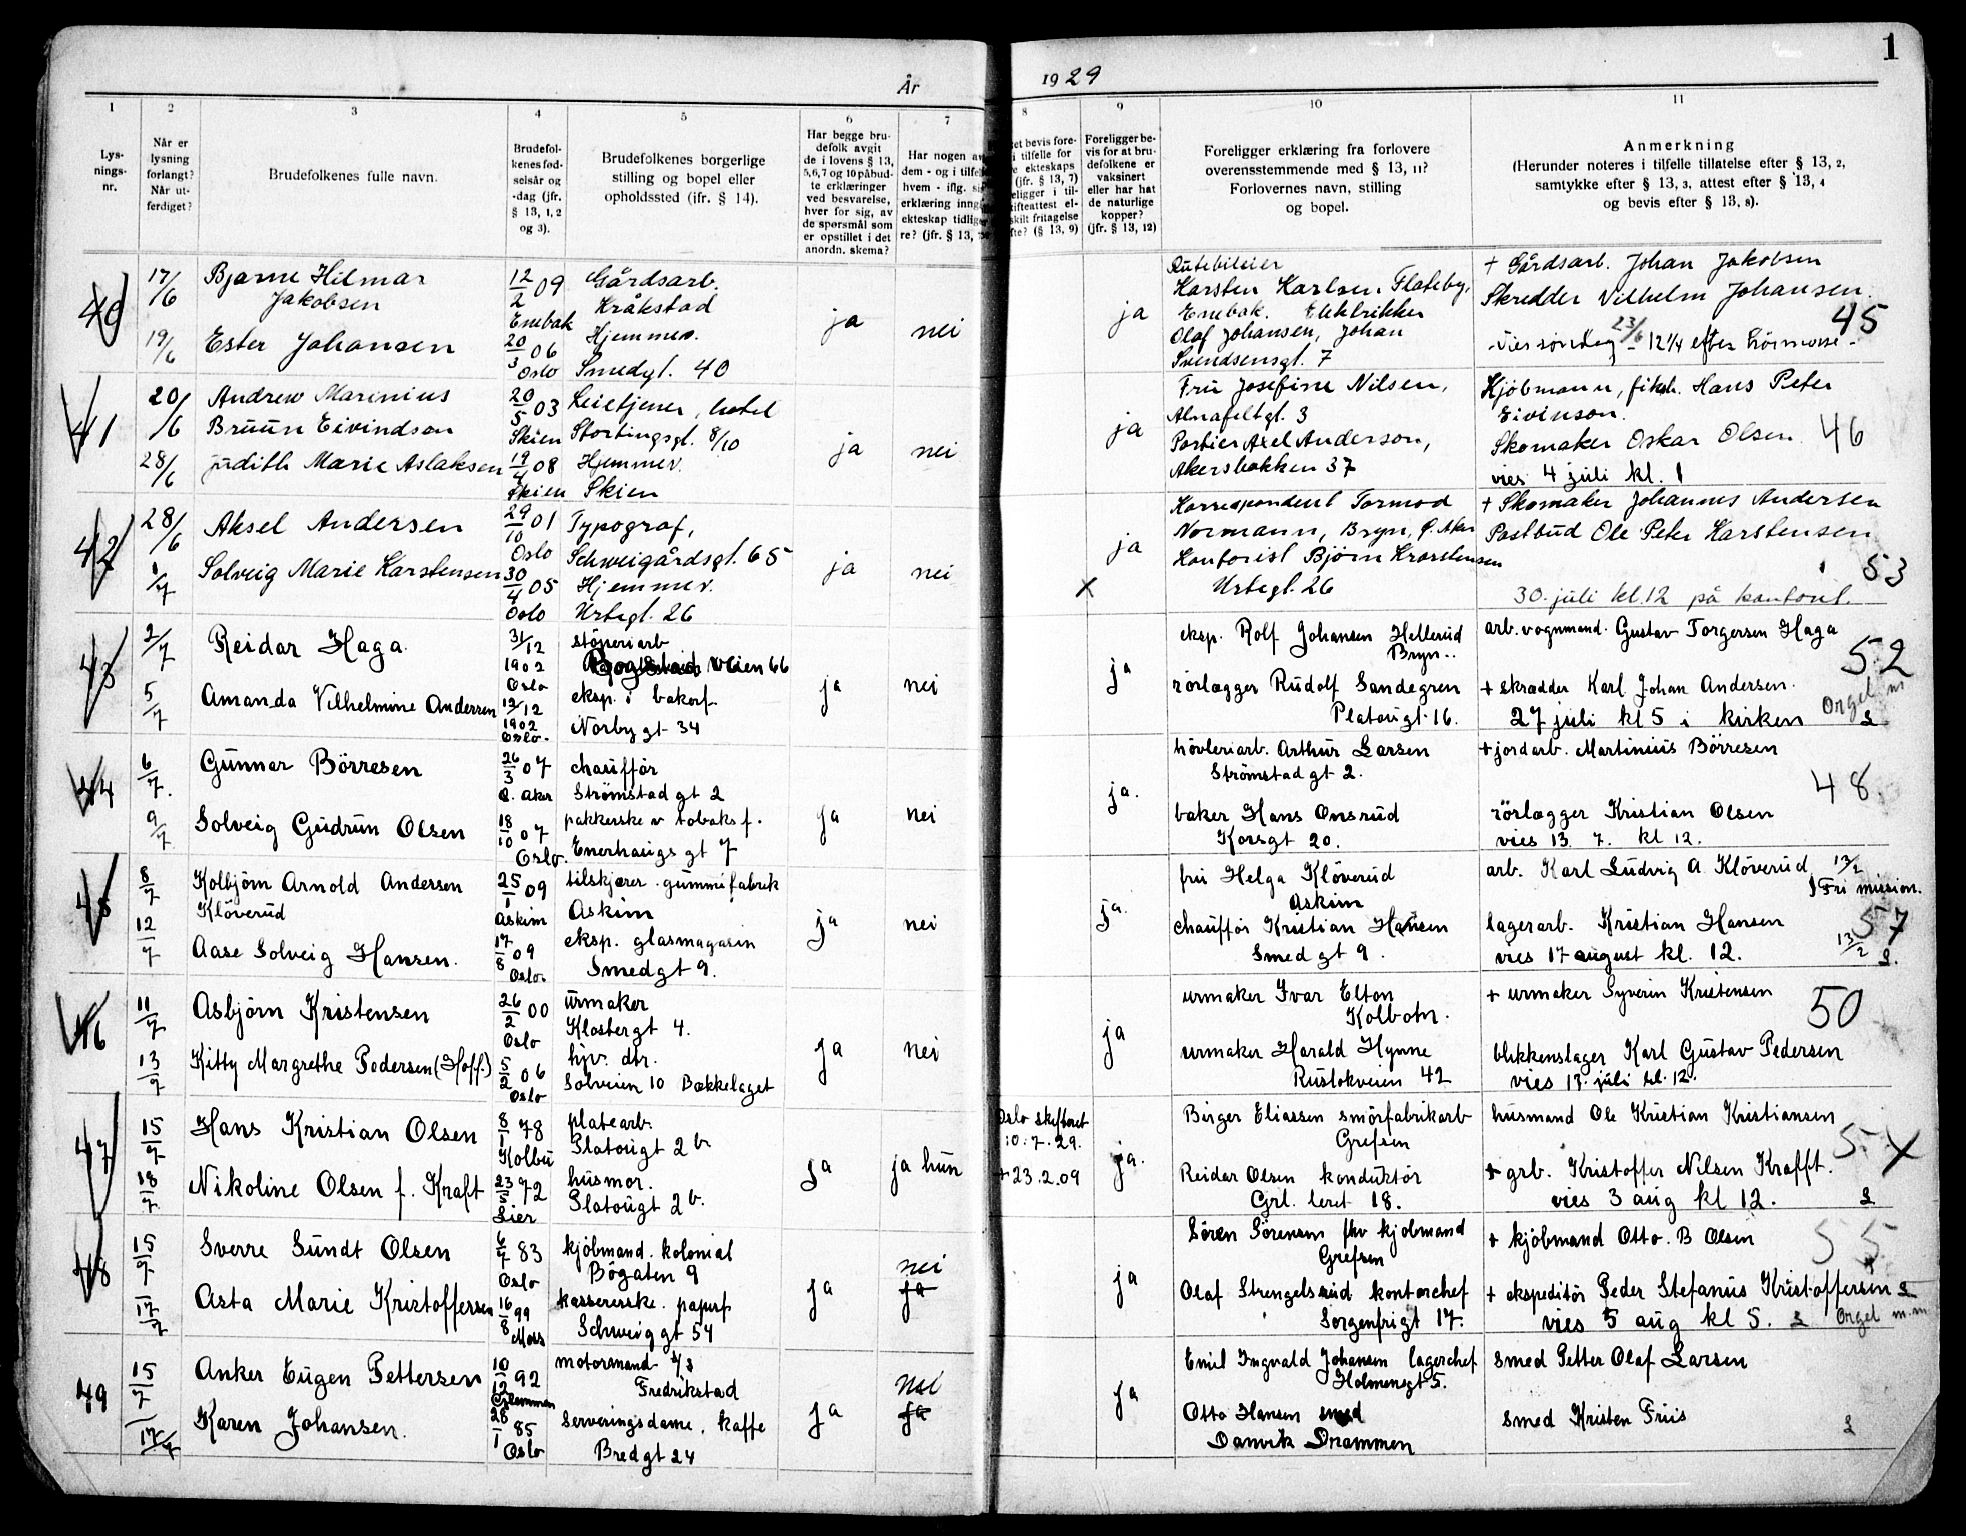 1
År 1929
1 2 3 4 5 6 7 8 9 10 11
Lys-
nings-
nr.
Når er
lysning
forlangt?
Når ut-
ferdiget?
Brudefolkenes fulle navn.
Brudefol-
kenes fød-
selsår og
-dag (jfr.
§ 13, 1, 2
og 3).
Brudefolkenes borgerlige
stilling og bopel eller
opholdssted (ifr. § 14).
Har begge bru-
defolk avgit
de i lovens § 13,
5, 6, 7 og 10 påbud-
te erklæringer
ved besvarelse,
hver for sig, av
de spørsmål som
er opstillet i det
anordn. skema?
Har nogen av
dem - og i tilfel
hvem - iflg. si
erklæring inng
ekteskap tidlig
re? (jfr. § 13,
et bevis fore-
i tilfelle for
e ekteskaps
(jfr. § 13, 7)
eligger i til-
ifteattest el-
skilt fritagelse
fte? (§ 13, 9)
Foreligger be-
vis for at bru-
defolkene er
vaksinert
eller har hat
de naturlige
kopper?
(jfr. § 13, 12)
Foreligger erklæring fra forlovere
overensstemmende med § 13, 11?
Forlovernes navn, stilling
og bopel.
Anmerkning
(Herunder noteres i tilfelle tillatelse efter § 13, 2,
samtykke efter § 13, 3, attest efter § 13, 4
og bevis efter § 13, 8).
40
17/6
19/6
Bjarne Hilmar
Jakobsen
Ester Johansen
12/2 09
Enebak
20/3 06
Oslo
Gårdsarb.
Kråkstad
Hjemmev.
Smedgt. 40
ja
nei
ja
Rutebileier
Karsten Karlsen Flateby,
Enebak. Elektrikker
Olaf Johansen, Johan
Svendsensgt. 7
+ Gårdsarb. Johan Jakobsen
Skredder Vilhelm Johansen.
45
Vies søndag 23/6 - 12 1/4 efter høimesse -
41
20/6
28/6
Andrew Marinius
Bruun Eivindson
Judith Marie Aslaksen
20/5 03
Skien
19/4 08
Skien
Leietjener, hotel
Stortingsgt. 8/10
Hjemmev.
Skien
ja
nei
ja
Fru Josefine Nilsen,
Alnafeltgt. 3
Portier Axel Anderson,
Akersbakken 37
Kjøbmann, Hans Peter
Eivinson.
Skomaker Oskar Olsen 46
vies 4 juli kl. 1
42
28/6
1/7
Aksel Andersen
Solveig Marie Karstensen
29/10 01
Oslo
30/4 05
Oslo
Typograf,
Schweigårdsgt. 65
Hjemmev.
Urtegt. 26
ja
nei
ja
X
Korrespondent Tormod
Normann, Bryn, Ø. Aker
Kontorist Bjørn Krarstensen
Urtegt. 26
+ Skomaker Johannes Andersen
Postbud Ole Peter Karstensen
53
30. juli kl. 12 på kontoret.
43
2/7
5/7
Reidar Haga.
Amanda Vilhelmine Andersen
31/12
1902
Oslo
12/12
1902
Oslo.
støperiarb
Bogstad veien 66
eksp. i bakerf
Norbygt 34
ja
nei
ja
eksp. Rolf Johansen Hellerud
Bryn..
rørlegger Rudolf Sandegren
Platougt. 16.
arb. vognmand. Gustav Torgersen Haga
52
+ skrædder Karl Johan Andersen.
27 juli kl 5 i kirken Orgel m
s
44
6/7.
9/7
Gunnar Börresen
Solveig Gudrun Olsen
26/3 07
Ø. Aker
18/10 07
Oslo.
chauffør
Strømstadgt 2
pakkerske v tobaksf.
Enerhaugsgt 7
ja
nei
ja.
høvleriarb. Arthur Larsen
Strømstadgt 2.
baker Hans Onsrud
Korsgt 20.
+ jordarb. Martinius Börresen
48
rörlægger Kristian Olsen
vies 13. 7. kl 12.
45
8/7
12/7
Kolbjørn Arnold Andersen
Klöverud
Aase Solveig Hansen.
25/1 09
Askim
17/8 09
Oslo.
tilskjærer. gummifabrik
Askim
eksp. glasmagasin
Smedgt 9.
ja
nei
ja.
fru Helga Klöverud
Askim
chauffør Kristian Hansen
Smedgt 9.
arb. Karl Ludvig A. Klöverud 13/2
Fri mission.
57
lagerarb. Kristian Hansen
vies 17 august kl. 12. 13/2 s.
46
11/7
13/7
Asbjørn Kristensen
Kitty Margrethe Pedersen (Hoff.)
26/2 00
Oslo
5/2 06
Oslo
urmaker
Klostergt 4.
hjv. dtr.
Solveien 10 Bækkelaget
ja
nei
ja
urmaker Ivar Elton
Kolbotn.
urmaker Harald Hynne
Rustokveien 42
+ urmaker Syverin Kristensen
50
blikkenslager Karl Gustav Pedersen
vies 13. juli kl. 12.
47
15/7
18/7
Hans Kristian Olsen
Nikoline Olsen f. Kraft
8/1 78
Kolbu
23/5 72
Lier
platearb.
Platougt 2 b.
husmor.
Platougt 2 b.
ja
ja hun
Oslo skifteret
10.7.29.
+ 23.2.09
ja.
Birger Eliassen smörfabrikarb
Grefsen
Reidar Olsen konduktør
Grl. leret 18.
husmand Ole Kristian Kristiansen
+ grb. Kristoffer Nilsen Krafft.
vies 3 aug kl 12. s
48
15/7
17/7
Sverre Sundt Olsen
Asta Marie Kristoffersen
6/7 83
Oslo
16/8 99
Moss
kjøbmand. kolonial
Bøgaten 9
kassererske. papirf
Schweiggt 54
ja
nei
ja
ja
Sören Sörensen fhv kjøbmand
Grefsen
Olaf Strengelsrud kontorchef
Sorgenfrigt 17.
+ kjøbmand Otto. B Olsen
55
+ ekspeditør Peder Stefanus Kristoffersen s
vies 5 aug kl 5. s Orgel m.m
49
15/7
17/7
Anker Eugen Pettersen
Karen Johansen.
10/12 92
Glemmen
28/1 85
Oslo
motormand
Fredrikstad
Serveringsdame, kaffe
Bredgt 24
ja
nei
ja
ja
Emil Ingvald Johansen lagerchef
Holmensgt 5.
Otto Hansen smed
Danvik Drammen
smed Petter Olaf Larsen
smed Kristen Friis
s